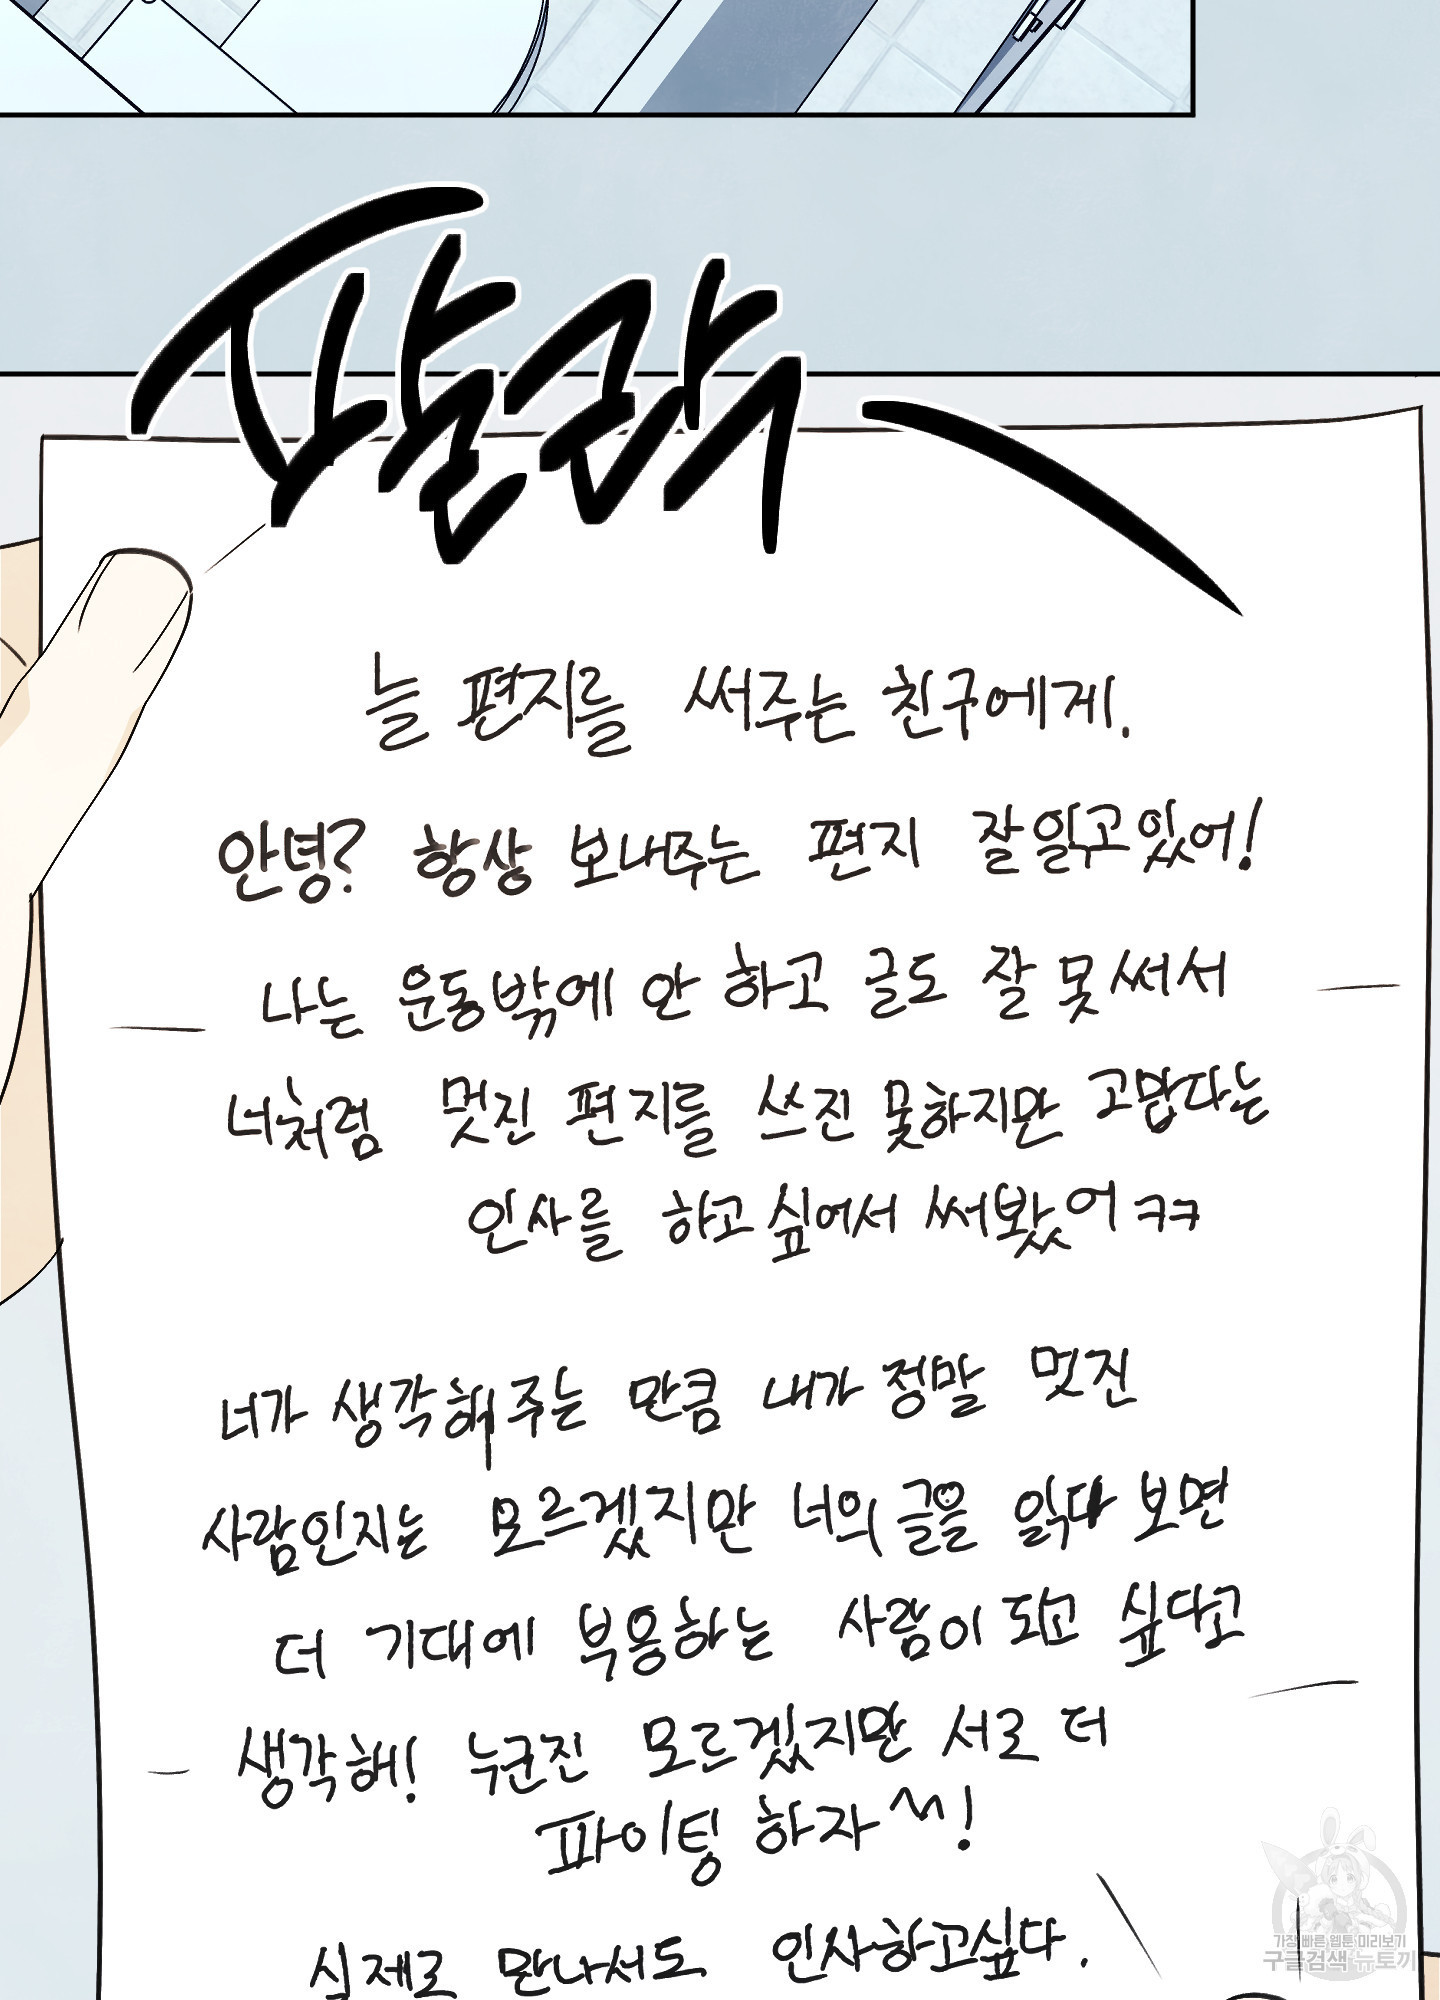 팔락
늘 편지를 써주는 친구에게.
안녕? 항상 보내주는 편지 잘 읽고 있어!
나는 운동밖에 안 하고 글도 잘 못써서
너처럼 멋진 편지를 쓰진 못하지만 고맙다는
인사를 하고 싶어서 써봤어 ㅋㅋ
너가 생각해주는 만큼 내가 정말 멋진
사람인지는 모르겠지만 너의 글을 읽다 보면
더 기대에 부응하는 사람이 되고 싶다고
생각해! 누군진 모르겠지만 서로 더
파이팅 하자^^!
실제로 만나서도 인사하고싶다.
가장빠른 웹툰 미리보기
구글검색 뉴토끼